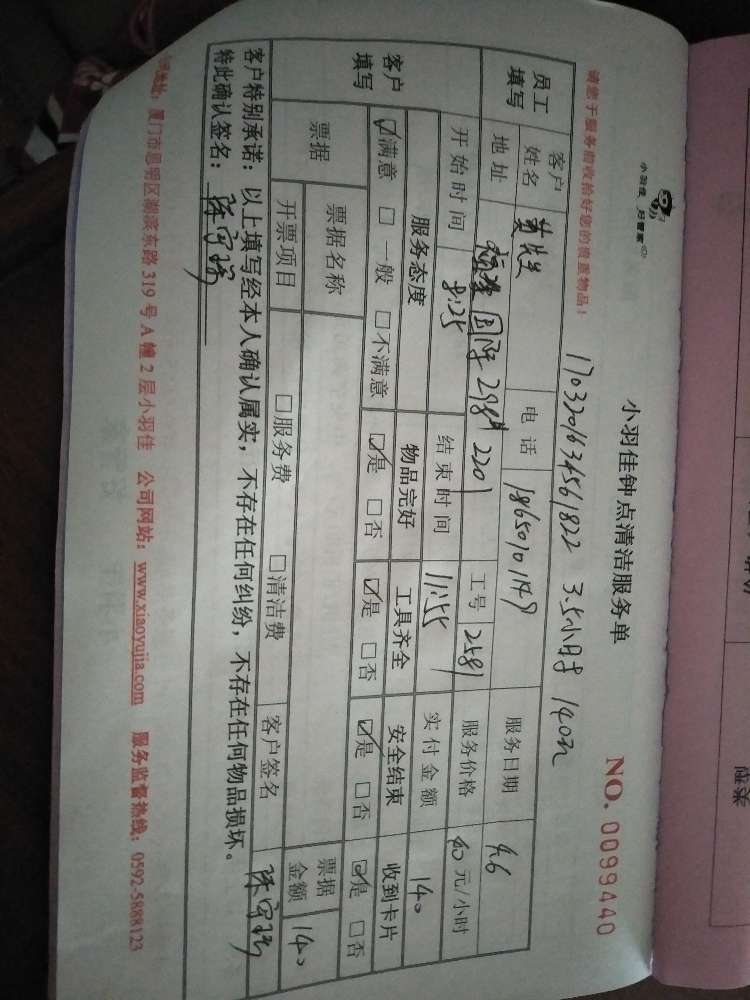 小羽佳 好管家
小羽佳钟点清洁服务单
NO. 0099440
请您于服务前收拾好您的贵重物品!
1703201634561822 3.5小时 140元
员工填写
客户姓名 黄先生 电话 18650101149 服务日期 4.6
地址 国际298# 2201 工号 2581 服务价格 40元/小时
开始时间 8:25 结束时间 11:55 实付金额 140
客户填写
服务态度 物品完好 工具齐全 安全结束 收到卡片
☑满意 □一般 □不满意 ☑是 □否 ☑是 □否 ☑是 □否 ☑是 □否
票据 票据名称 票据金额 140
开票项目 □服务费 □清洁费 客户签名
客户特别承诺:以上填写经本人确认属实,不存在任何纠纷,不存在任何物品损坏。
特此确认签名:
厦门市思明区湖滨东路319号A幢2层小羽佳 公司网站:www.xiaoyujia.com 服务监督热线:0592-5888123